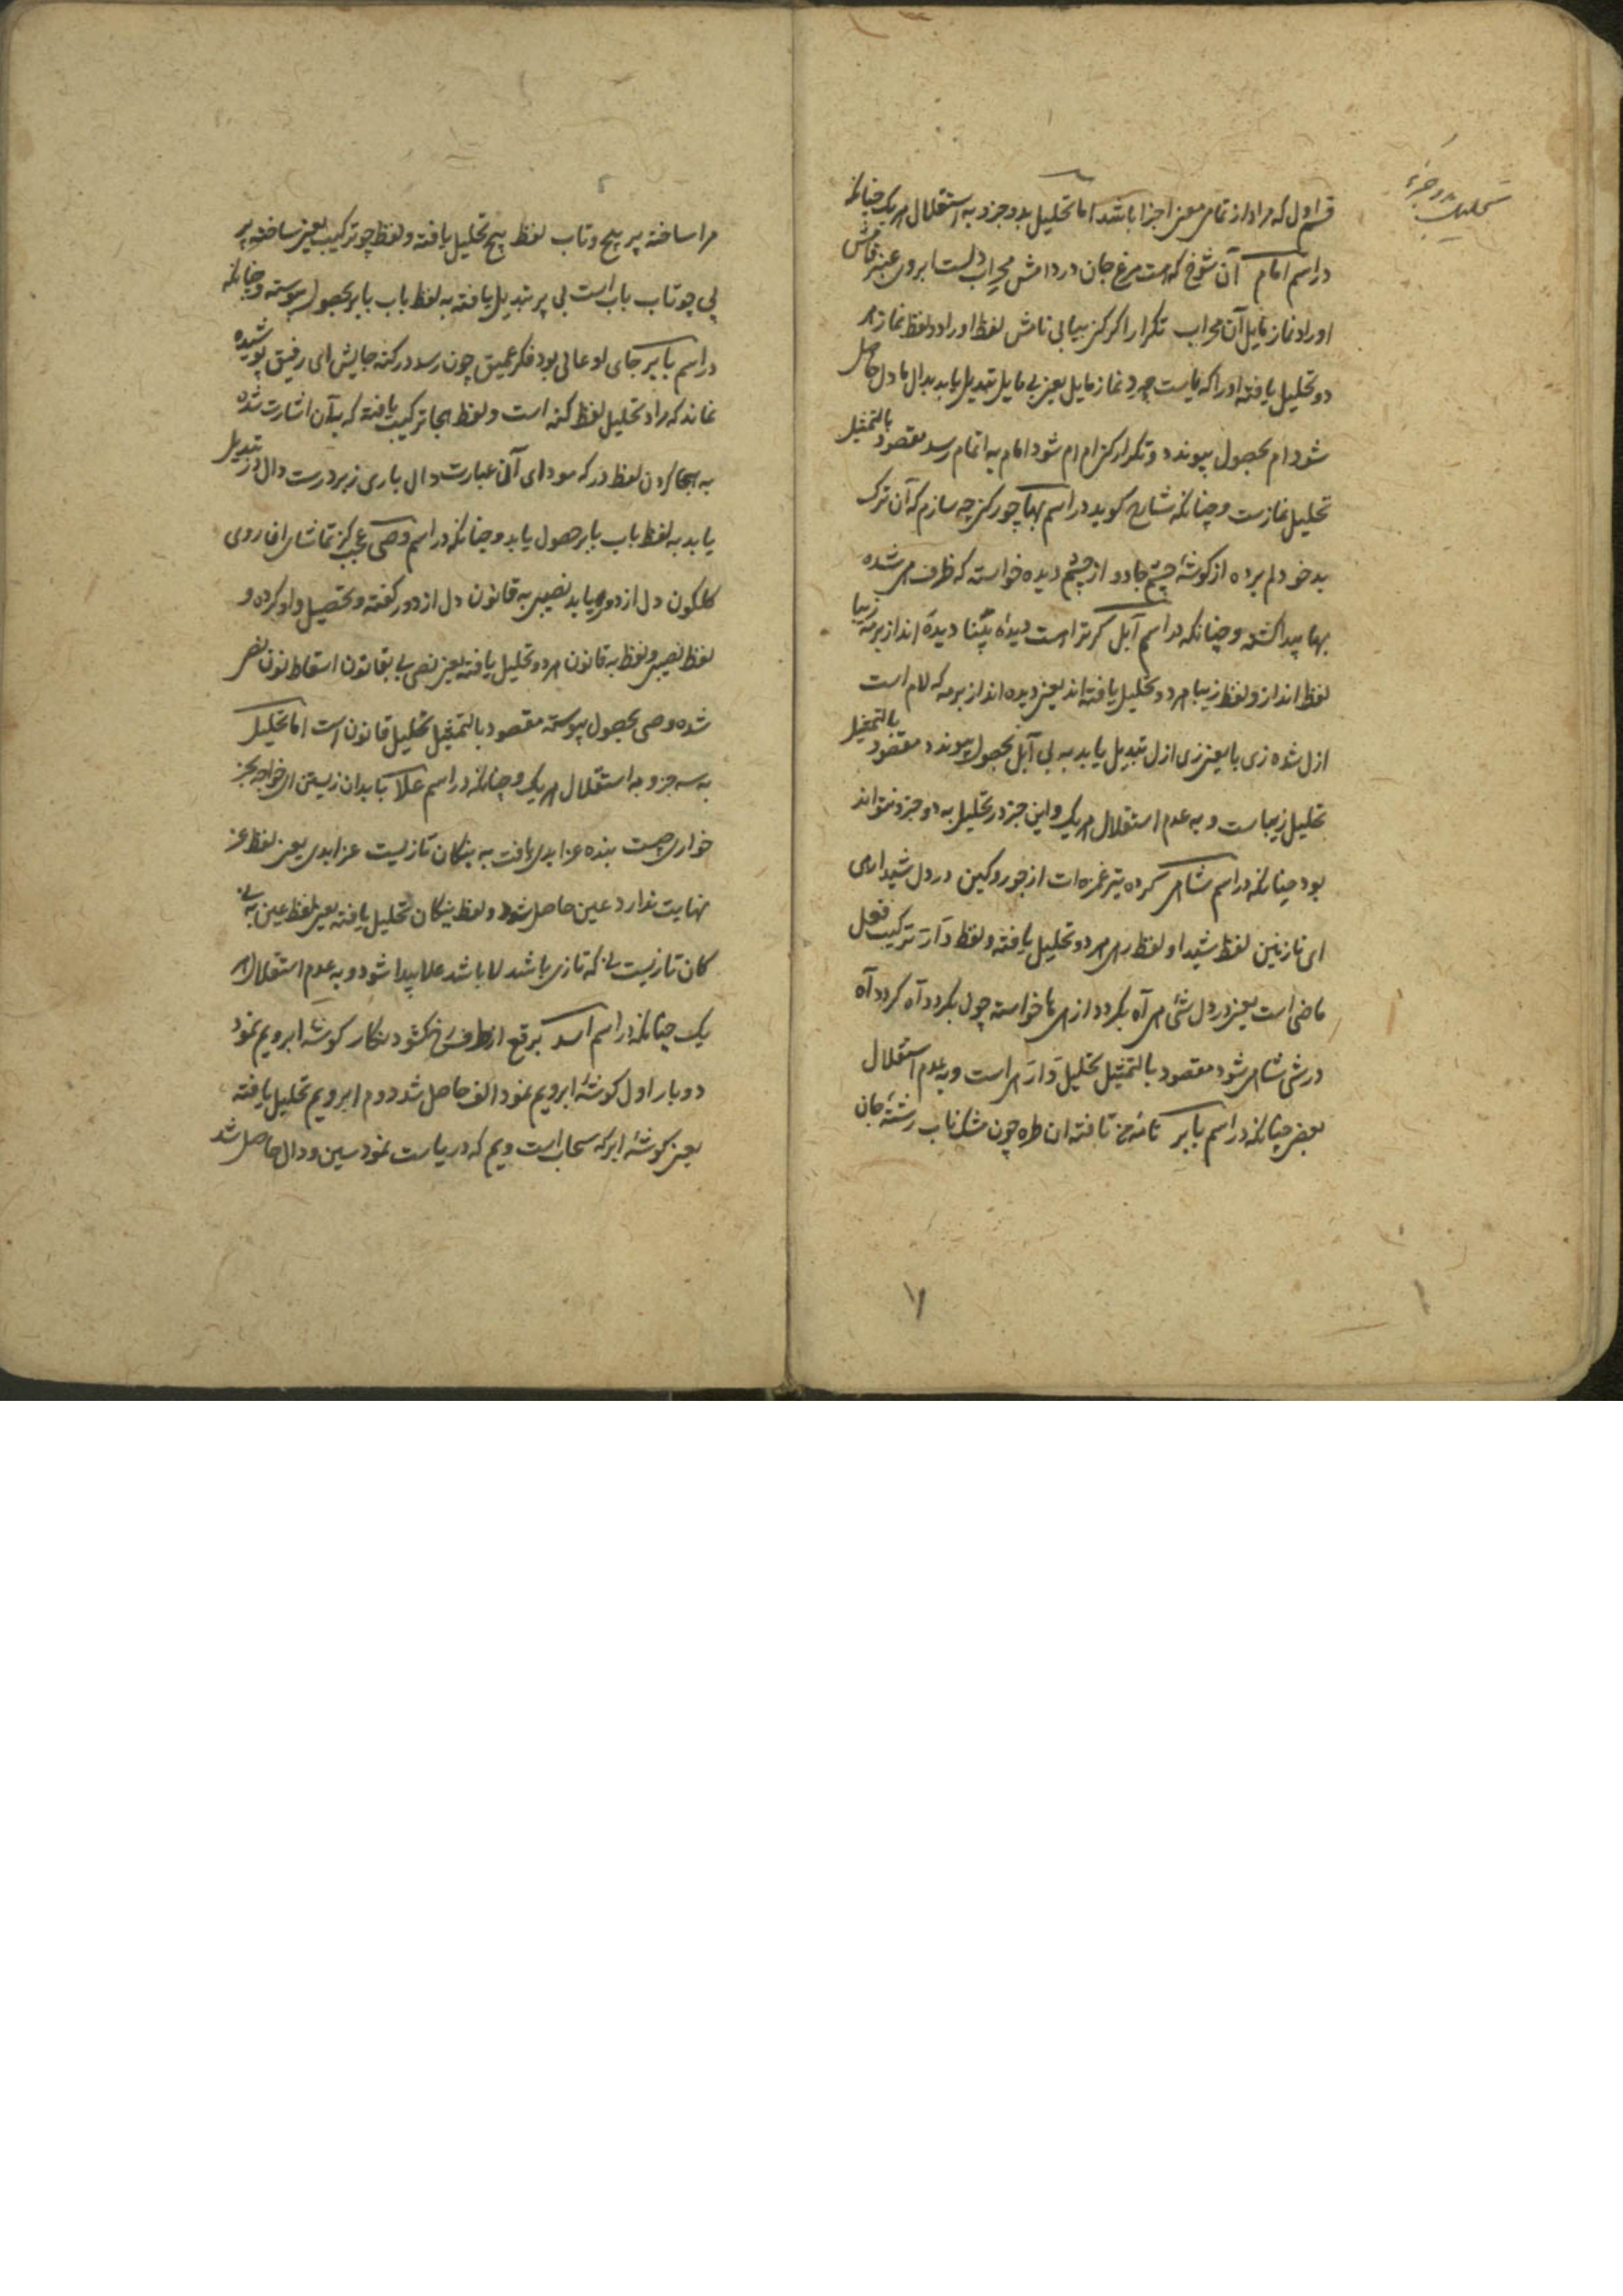 تحلیل بدو جزء
قسم اول که مراد از تمامی معنی اجزا باشد اما تحلیل بدو جزو به استقلال هر یک چنانکه
در اسم امام آن شوخ که هست مرغ جان در دامش محراب دلست ابروی عنبر فامش
اوراد نماز مایل آن محراب تکرار اگر کنی بیابی نامش لفظ اوراد و لفظ نماز هر
دو تحلیل یافته اورا که ماست چو رد نماز مایل یعنی بی مایل تبدیل یابد بدال ما دل حاصل
شود ام بحصول پیوندد و تکرار کن ام ام شود امام به اتمام رسد مقصود بالتمثیل
تحلیل نمازست و چنانکه شارح گوید در اسم بها چور کنی چه سازم که آن ترک
بدخو دلم برده از گوشهٔ چشم جادو از چشم دیده خواسته که ظرف می شده
بها پیدا گشته و چنانکه در اسم آبل گر ترا است دیدهٔ بینا دیده انداز بر مه زیبا
لفظ انداز و لفظ زیبا هر دو تحلیل یافته اند یعنی دیده انداز بر مه که لام است
ازل شده زی با یعنی زی ازل تبدیل یابد به بی آبل بحصول پیوندد مقصود بالتمثیل
تحلیل زیباست و به عدم استقلال هر یک و این جز در تحلیل به دو جزو نتواند
بود چنانکه در اسم شاهی کرده تیر غمزه ات از جور و کین در دل شیدا رهی
ای نازنین لفظ شیدا و لفظ رهی هر دو تحلیل یافته و لفظ دار ترکیب فعل
ماضی است یعنی در دل شئ می آه بگردد از می ما خواسته چون بگردد آه گردد آه
در شی شاهی شود مقصود بالتمثیل تحلیل دار هی است و به عدم استقلال
بعضی چنانکه در اسم بابر تا مه من تافته ان طره چون مشک ناب رشتهٔ جان
مرا ساخته پر پیچ و تاب لفظ پیچ تحلیل یافته و لفظ چو ترکیب یعنی ساخته پر
پی چو تاب باب است بی پر تبدیل یافته به لفظ باب بابر بحصول پیوسته و چنانکه
در اسم بابر جای او عالی بود فکر عمیق چون رسد در کنه جایش ای رفیق پوشیده
نماند که مراد تحلیل لفظ کنه است و لفظ بجا ترکیب یافته که بآن اشارت شده
به هجا کردن لفظ در که مودای آن عبارت دال باری زبر درست دال در تبدیل
یابد به لفظ باب بابر حصول یابد و چنانکه در اسم وصی عجب کز تماشای ان روی
گلگون دل از دور یابد نصیبی به قانون دل از دور گفته و تحصیل واو کرده و
لفظ نصیبی و لفظ به قانون هر دو تحلیل یافته یعنی نصی بی بقانون اسقاط نون نص
شده وصی بحصول پیوسته مقصود بالتمثیل تحلیل قانون است اما تحلیل
به سه جزو به استقلال هر یک و چنانکه در اسم علا تا بدان زیستن ای خواجه بجز
خواری چیست بنده عز ابدی یافت به بنکان تازیست عز ابدی یعنی لفظ عز
نهایت ندارد عین حاصل شود و لفظ بنکان تحلیل یافته یعنی لفظ عین به نی
کان تازیست نی که تازی باشد لا باشد علا پیدا شود و به عدم استقلال هر
یک چنانکه در اسم اسد برقع از طرف رخ گشود نگار گوشهٔ ابرویم نمود
دو بار اول گوشهٔ ابرویم نمود الف حاصل شد دوم ابرویم تحلیل یافته
یعنی گوشهٔ ابر که سحاب است ویم که دریاست نمود سین و دال حاصل شد